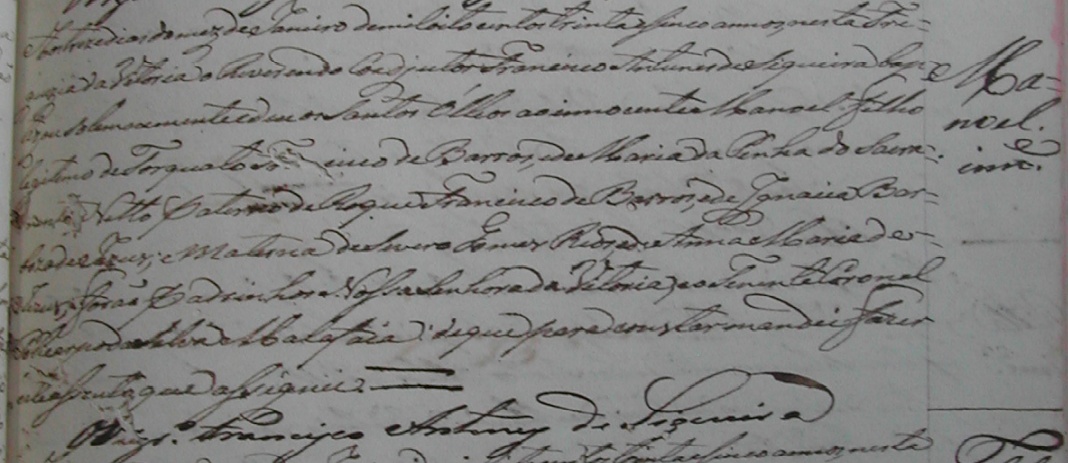 Aos treze dias do mez de Janeiro de mil oito centos trinta e sinco annos, nesta Fre=
guezia da Vitoria o Reverendo Coadjutor Francisco Antunes de Siqueira bap=
tizou solemnemente e deu os Santos Olleos ao innocente Manoel: filho
legitimo de Torquato Fr.co cisco de Barros, e de Maria da Penha do Sacra=
mento Netto Paterno de Roque Francisco de Barros, e de Ignacia Bar=
boza de Jezus; e Materna de Alvaro Gomes Rios, e de Anna Maria de
Jezus; forão Padrinhos Nossa Senhora da Vitoria, e o Tenente Coronel
da Silva Malafaia: de que para constar mandei fazer
este assento, que assignei.
O Vigr.o Francisco Antunes de Siqueira
Ma=
noel.
inn.e
centos trinta e sinco annos, nesta